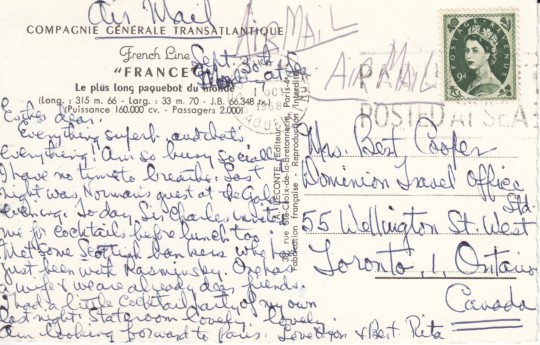 Air Mail
COMPAGNIE GÉNÉRALE TRANSATLANTIQUE
AIR MAIL
French Line
Sept. 3
"FRANCE"
at Sea
AIR MAIL
Le plus long paquebot du monde
(Long. : 315 m 66 - Larg. : 33 m 70 - J.B. 66.348 Tx)
(Puissance 160.000 cv. - Passagers 2.000)
OCT
1968
POSTED AT SEA
POSTAGE REVENUE
9D
Esther dear,
Everything superb and oh
everything! Am so busy socially
I have no time to breathe. Last
night was Norman's guest at the Gala
evening. Today, Sir Charles invited
me for cocktails before lunch too.
Met some Scottish bankers who had
just been with Rasminsky. One has
a wife & we are already dear friends.
I had a little cocktail party of my own
last night. Stateroom lovely, lovely
Am looking forward to Paris. Love to you & Bert. Rita
Mrs. Bert Cooper
Dominion Travel Office
Ltd.
55 Wellington St. West
Toronto, 1, Ontario
Canada
rue Ste-Croix-de-la-Bretonnerie, Paris
Fabrication française - Reproduction interdite